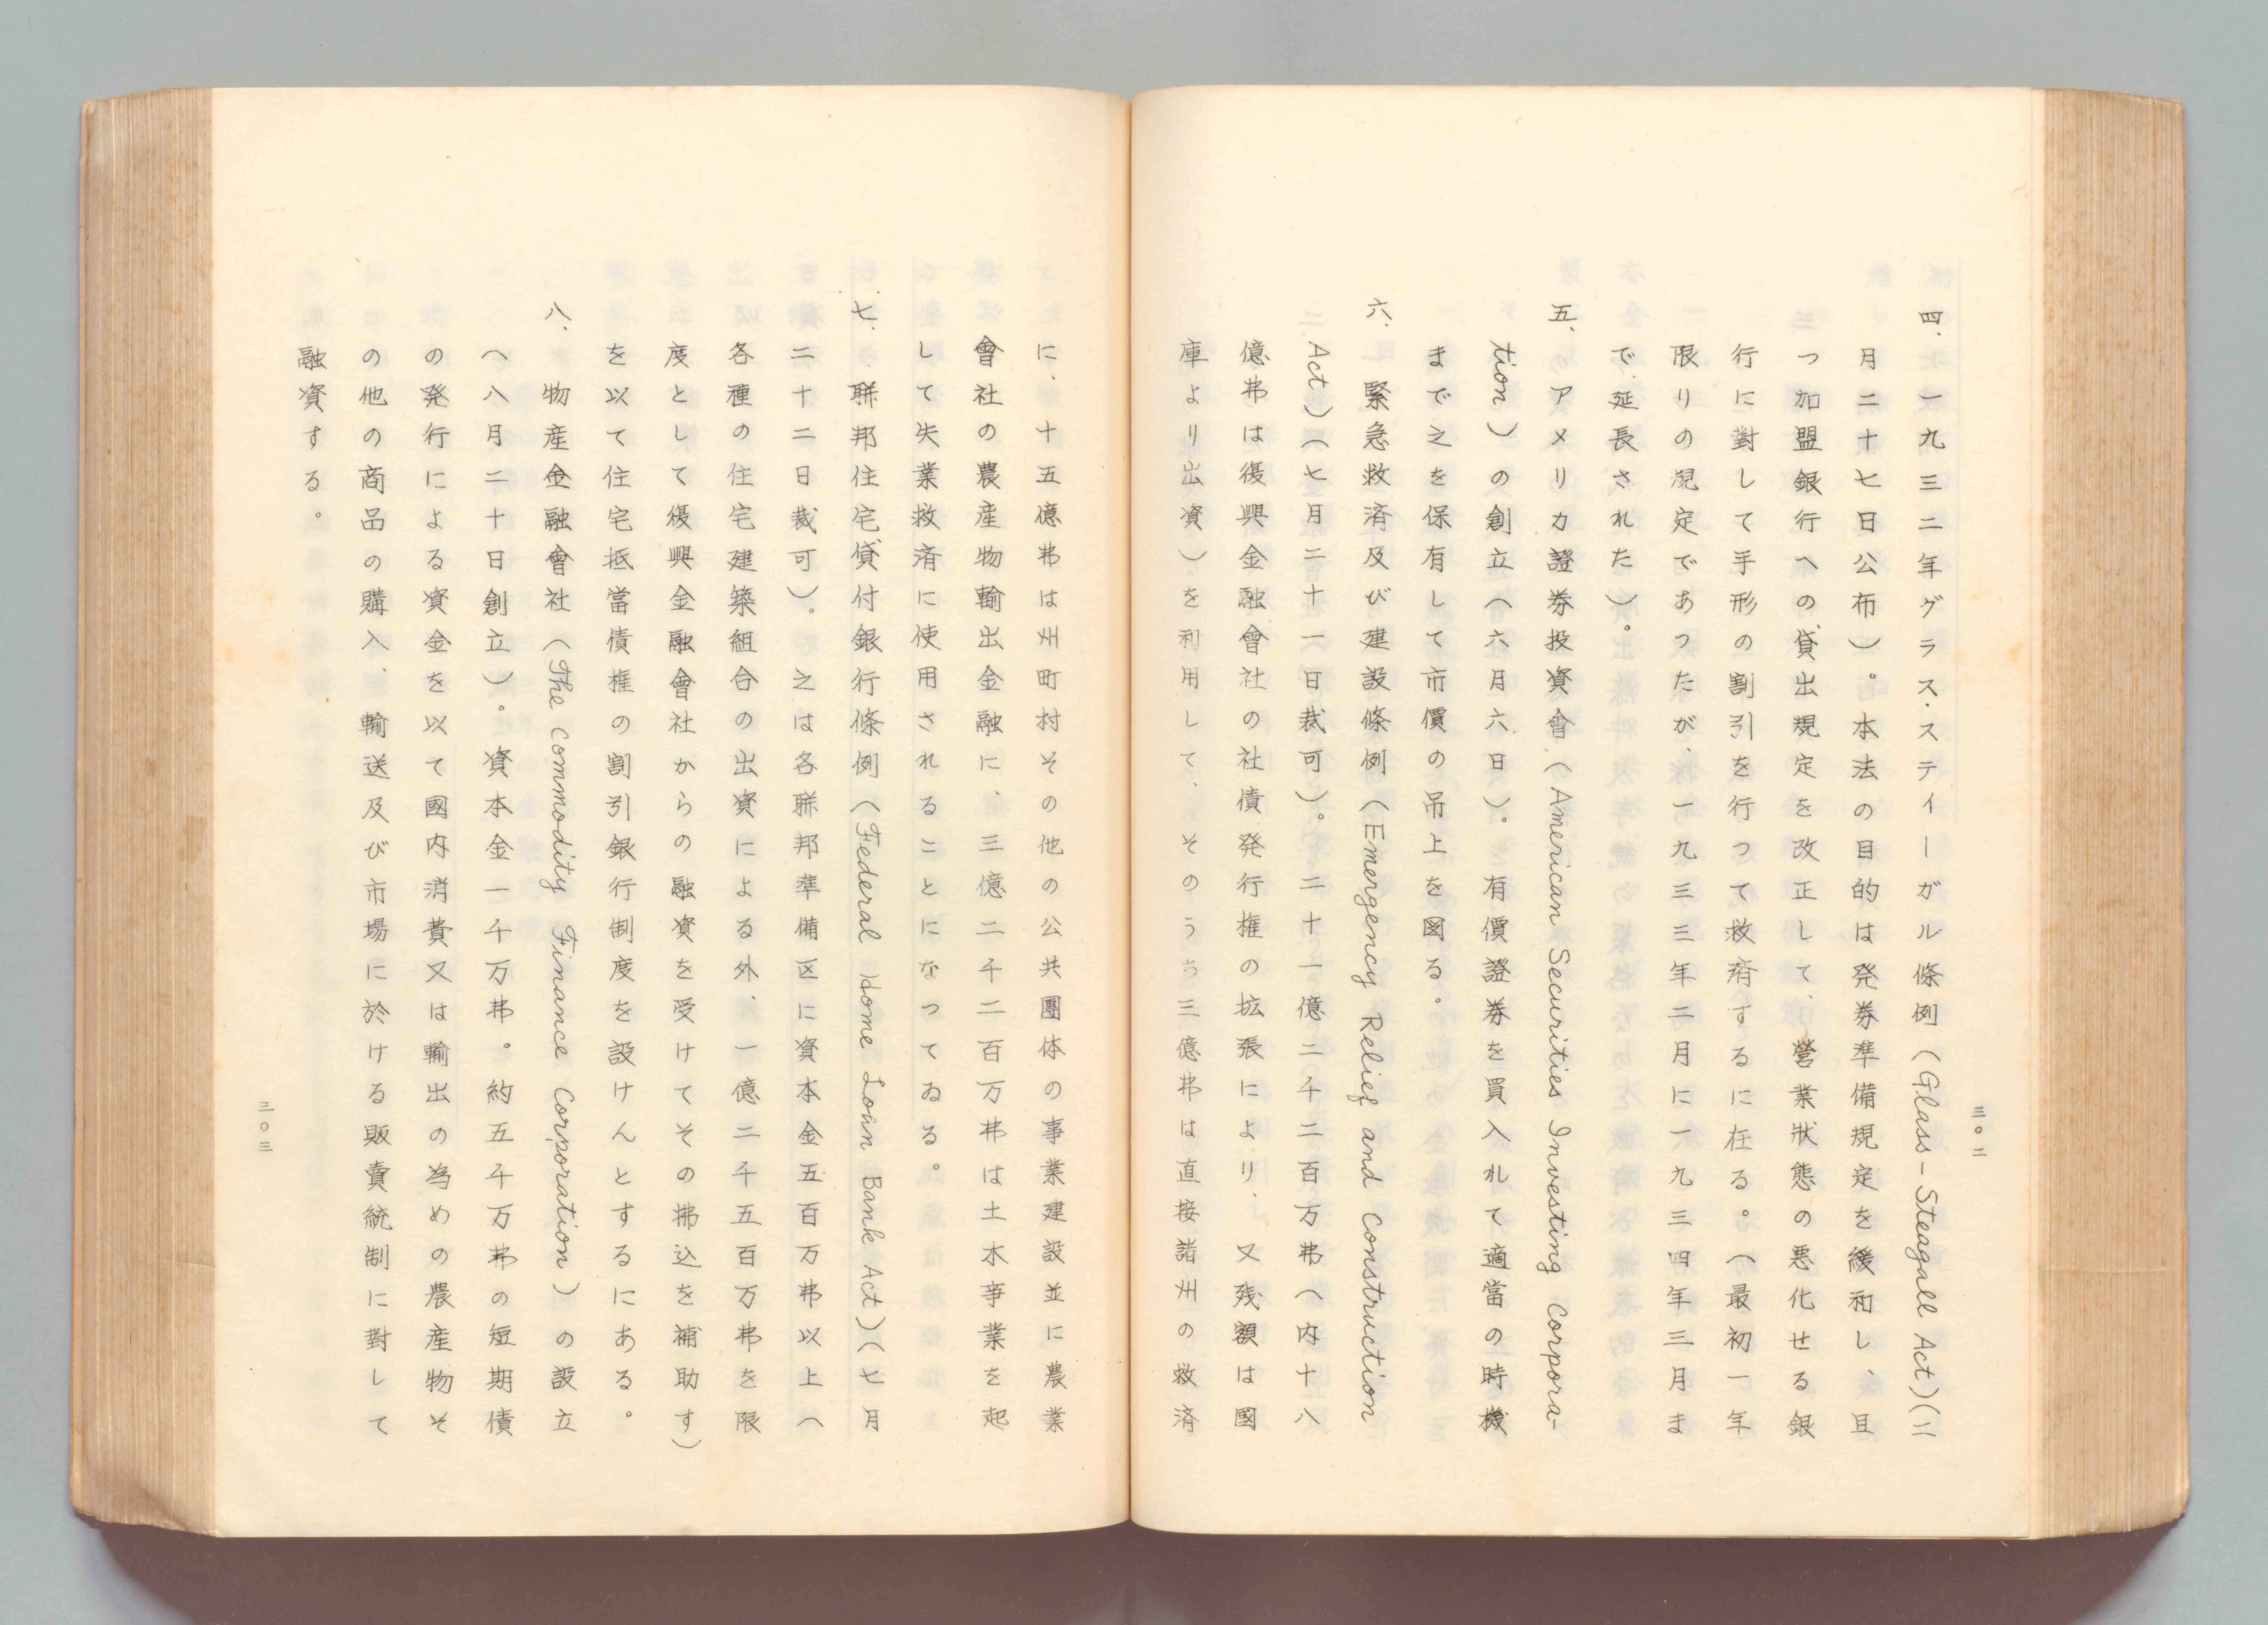 三〇二
四、一九三二年グラス・スティーガル條例（Glass-Steagall Act)（二
月二十七日公布）。本法の目的は発券準備規定を緩和し、且
つ加盟銀行への貸出規定を改正して、營業狀態の悪化せる銀
行に對して手形の割引を行つて救済するに在る。（最初一年
限りの規定であつたが、一九三三年二月に一九三四年三月ま
で延長された）。
五、アメリカ證券投資會（American Securities Investing Corpora-
tion）の創立（六月六日）。有價證券を買入れて適當の時機
まで之を保有して市價の吊上を図る。
六、緊急救済及び建設條例（Emergency Relief and Construction
Act）（七月二十一日裁可）。二十一億二千二百万弗（内十八
億弗は復興金融會社の社債発行権の拡張により、又残額は國
庫より出資）を利用して、そのうち三億弗は直接諸州の救済
に、十五億弗は州町村その他の公共團体の事業建設並に農業
會社の農産物輸出金融に、三億二千二百万弗は土木事業を起
して失業救済に使用されることになつてゐる。
七、聯邦住宅貸付銀行條例（Federal Home Loan Bank Act）（七月
二十二日裁可）。之は各聯邦準備区に資本金五百万弗以上（
各種の住宅建築組合の出資による外、一億二千五百万弗を限
度として復興金融會社からの融資を受けてその拂込を補助す）
を以て住宅抵當債権の割引銀行制度を設けんとするにある。
八、物産金融會社（The Commodity Finance Corporation）の設立
（八月二十日創立）。資本金一千万弗。約五千万弗の短期債
の発行による資金を以て國内消費又は輸出の為めの農産物そ
の他の商品の購入、輸送及び市場に於ける販賣統制に對して
融資する。
三〇三